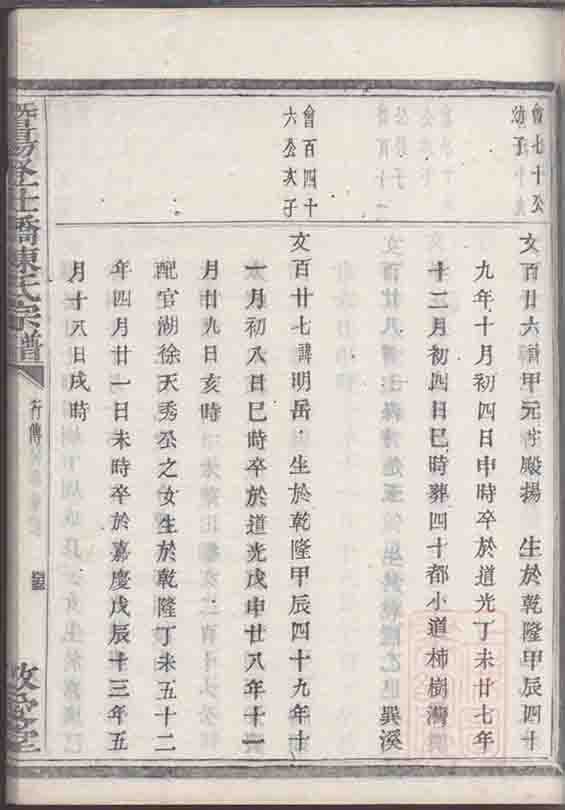 會七十公
幼子
文百廿六諱甲元字殿揚 生於乾隆甲辰四十
九年十月初四日申時卒於道光丁未廿七年
十二月初四日巳時葬四十都小道柿樹灣
巽溪
會百四十
六公次子
文百廿七諱明岳 生於乾隆甲辰四十九年十
一月初八日巳時卒於道光戊申廿八年十一
月廿九日亥時
配官湖徐天秀公之女生於乾隆丁未五十二
年四月廿一日未時卒於嘉慶戊辰十三年五
月十八日戌時
暨陽 橋陳氏宗譜
行傳
敬愛堂